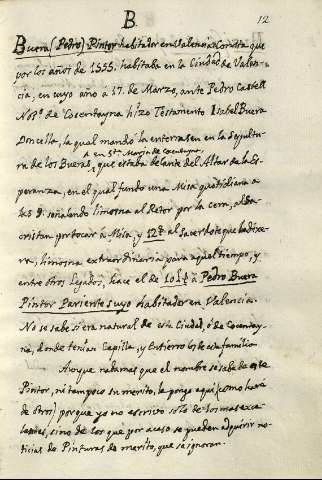 B.
12
Buera (Pedro) Pintor habitador en Valencia. Consta que
por los años de 1555. habitaba en la Ciudad de Valen-
cia, en cuyo año a 17. de Marzo, ante Pedro Castell
Nott.o de Cocentayna hizo Testamento Isabel Buera
Doncella, la qual mandó la enterrasen en la Sepultu-
en Sta. Maria de Cocentayna
ra de los Bueras, que estaba delante del Altar de la Es-
peranza, en el qual fundó una Misa quotidiana a
las 9. señalando limosna al Retor por la cera, al Sa-
cristan por tocar á Misa, y al Sacerdote que la dixe-
ra, limosna extraordinaria para aquel tiempo, y
entre otros Legados, hace el de á Pedro Buera
Pintor Pariente suyo habitador en Valencia.
No se sabe si era natural de esta Ciudad, ó de Cocentay-
na, donde tenian Capilla, y Entierro los de esta familia.
Aunque nada mas que el nombre se sabe de este
Pintor, ni tampoco su merito, le pongo aqui (como haré
de otros) porque yo no escrivo solo de los mas exce-
lentes, sino de los que por acaso se pueden adquirir no-
ticias de Pinturas de merito, que se ignoran.